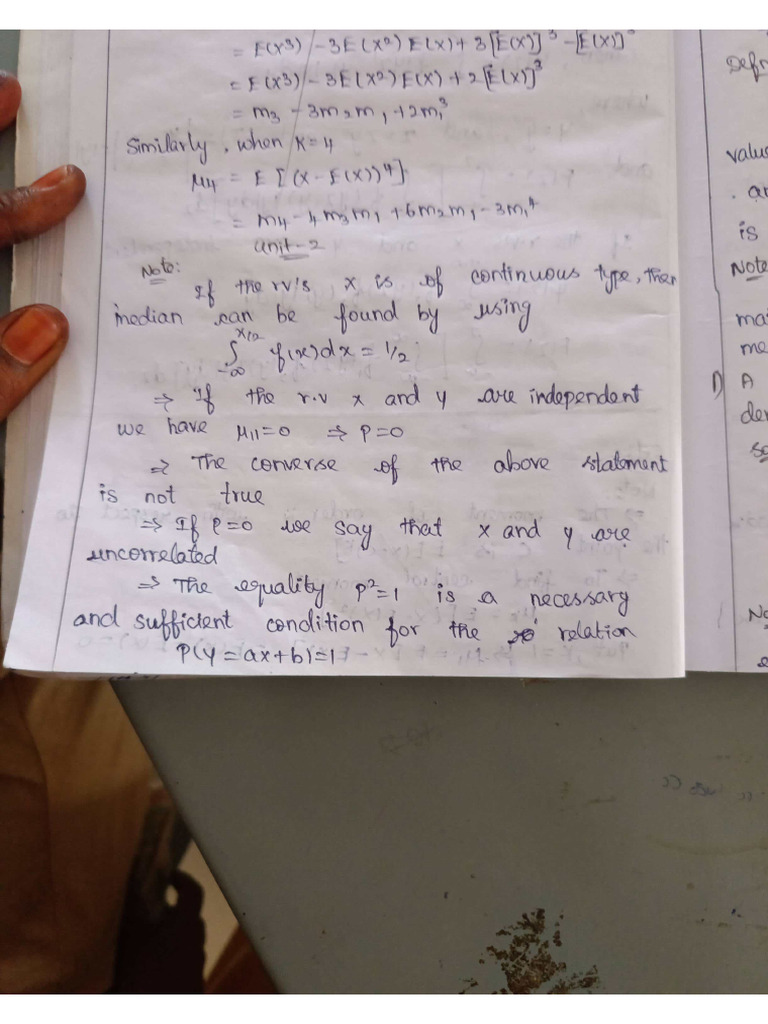 = E(x³) - 3E(x²) E(x) + 3[E(x)]³ - [E(x)]³
= E(x³) - 3E(x²) E(x) + 2[E(x)]³
= m₃ - 3m₂m₁ + 2m₁³
Similarly, when K=4
μ₄ = E[(x - E(x))⁴]
= m₄ - 4m₃m₁ + 6m₂m₁ - 3m₁⁴
unit-2
Note:
If the rv's x is of continuous type, then
median can be found by using
∫_{-∞}^{x1/2} f(x)dx = 1/2
⇒ If the r.v x and y are independent
we have μ₁₁=0 ⇒ ρ=0
⇒ The converse of the above statement
is not true
⇒ If ρ=0 we say that x and y are
uncorrelated
⇒ The equality ρ²=1 is a necessary
and sufficient condition for the relation
P(y = ax+b)=1
Defn
value
is
Note
me
1) A